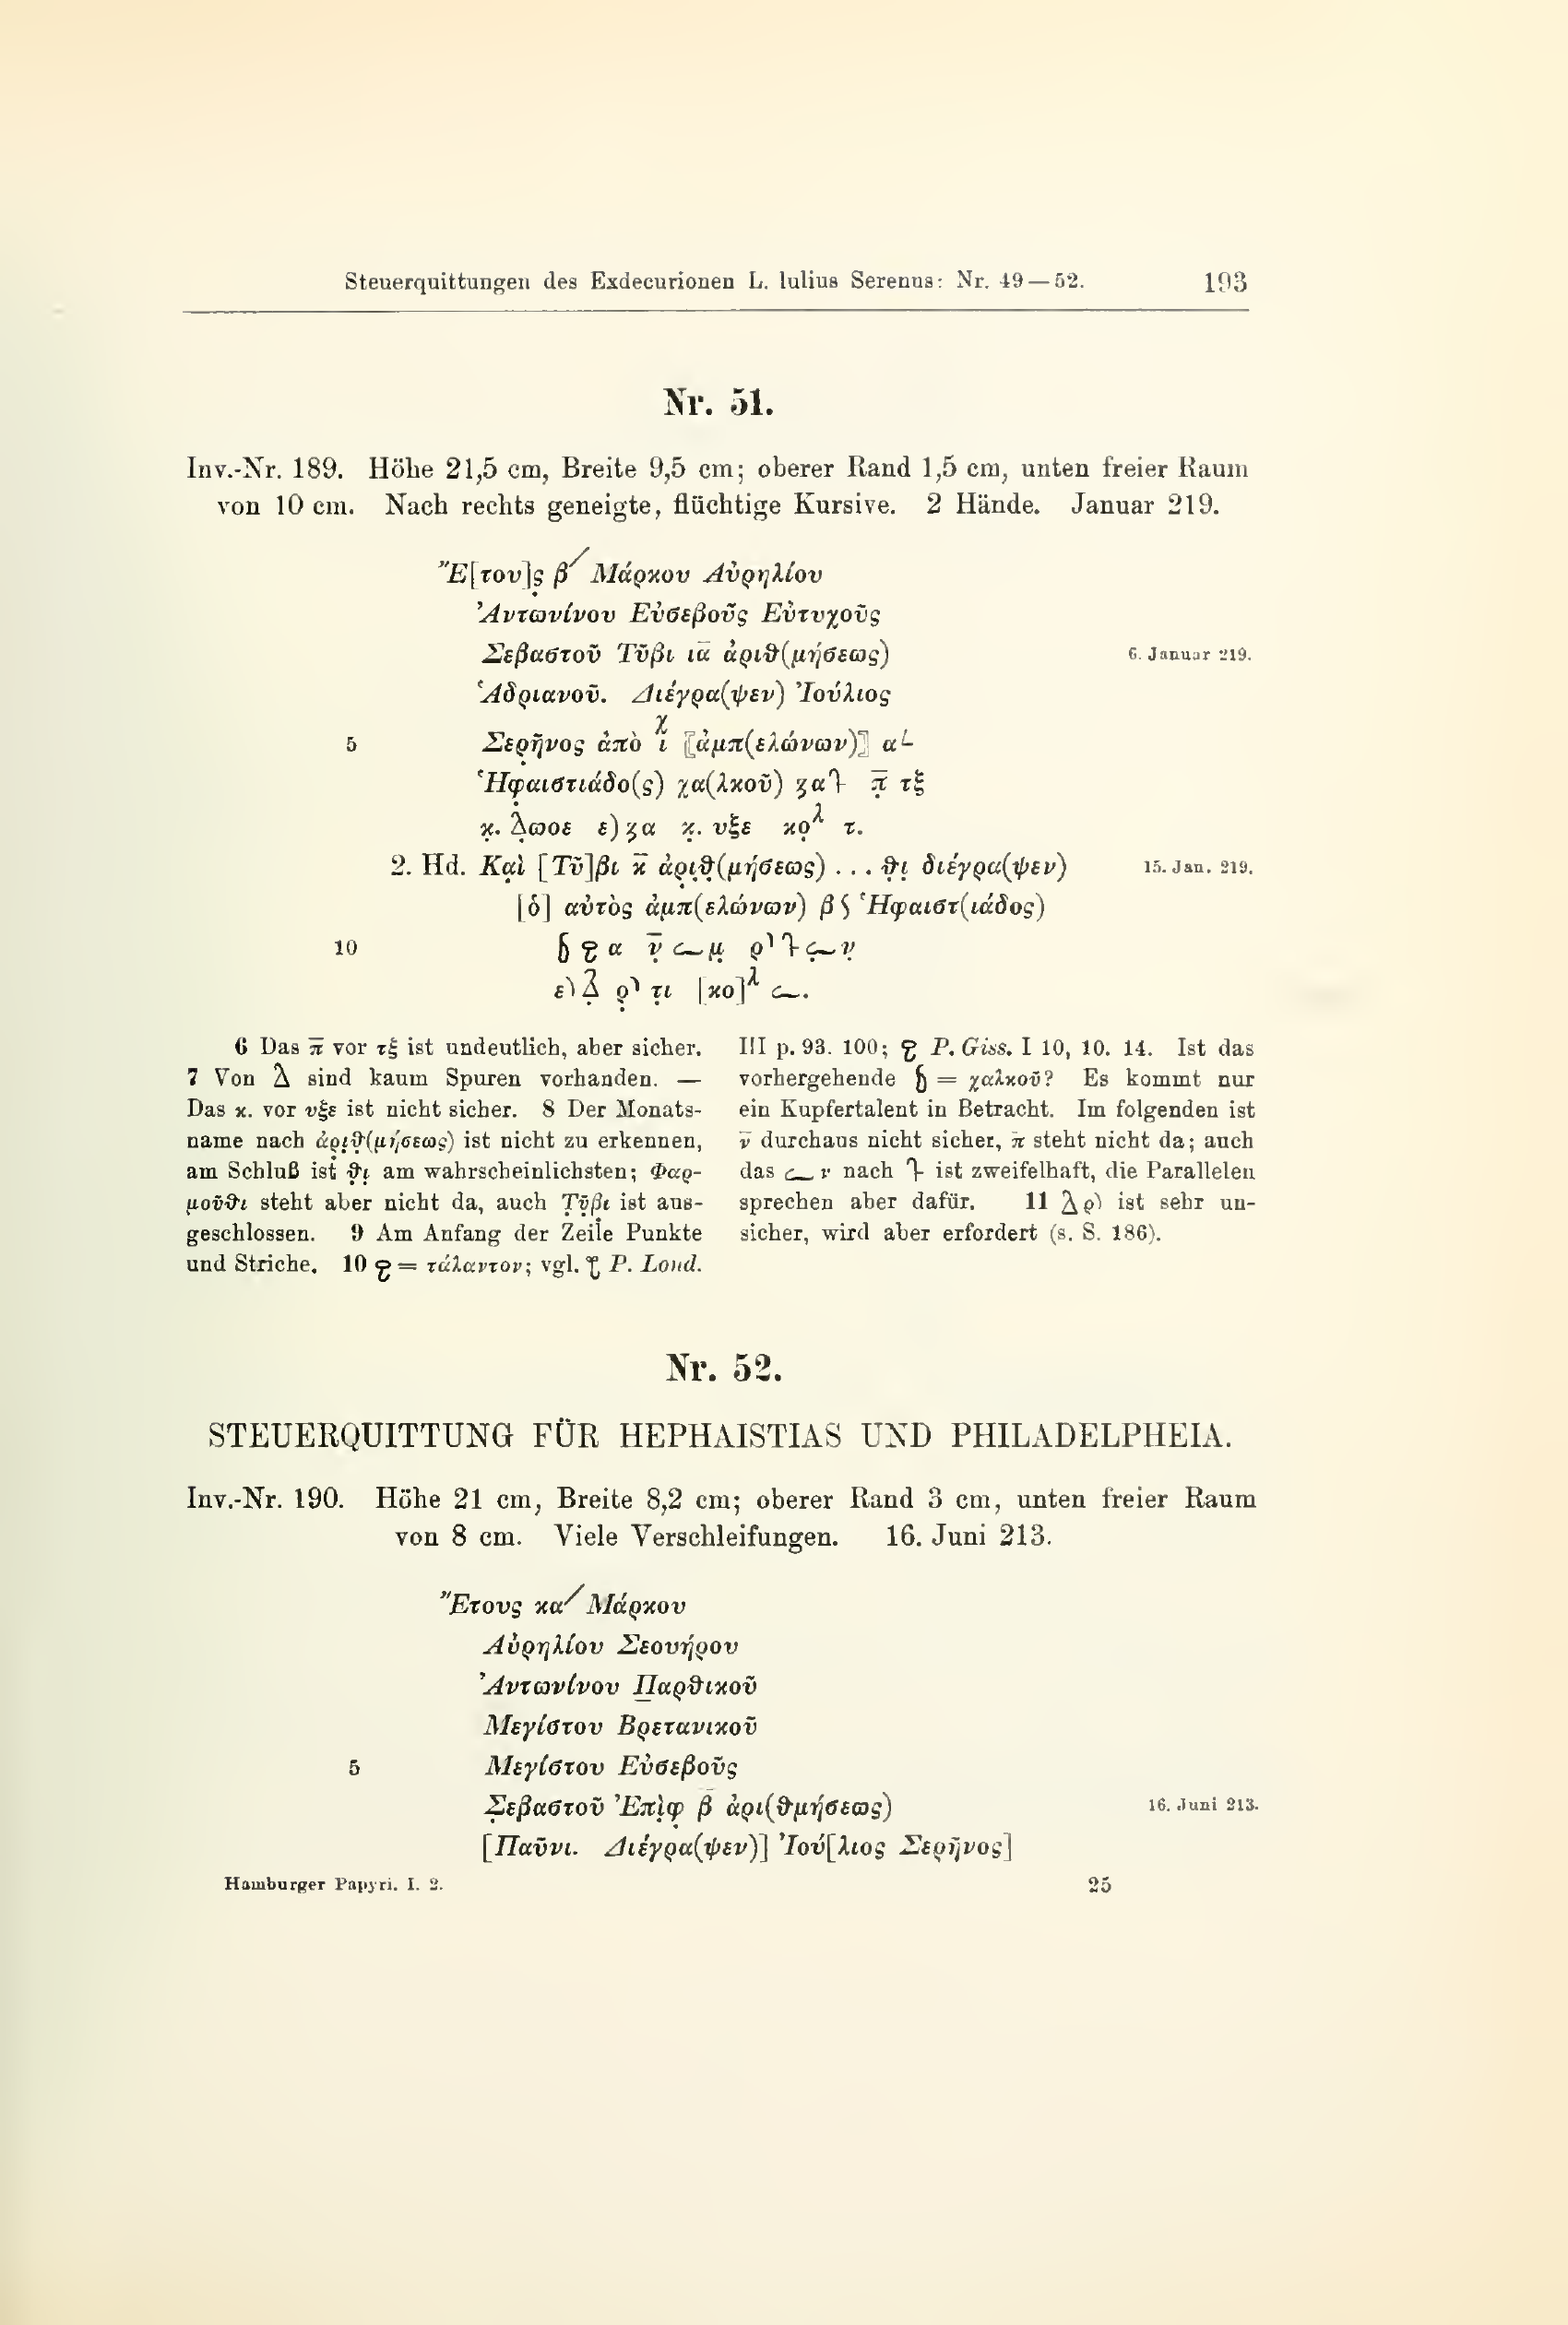 Steuerquittungen des Exdecurionen L. Iulius Serenus: Nr. 49—52. 193
Nr. 51.
Inv.-Nr. 189. Höhe 21,5 cm, Breite 9,5 cm; oberer Rand 1,5 cm, unten freier Raum
von 10 cm. Nach rechts geneigte, flüchtige Kursive. 2 Hände. Januar 219.
Ἔ[του]ς̣ β⸍ Μάρκου Αὐρηλίου
Ἀντωνίνου Εὐσεβοῦς Εὐτυχοῦς
Σεβαστοῦ Τῦβι ι̅α̅ ἀριθ(μήσεως) 6. Januar 219.
Ἁδριανοῦ. Διέγρα(ψεν) Ἰούλιος
5 Σερῆνος ἀπὸ ι χ ⟦ἀμπ(ελώνων)⟧ α
Ἡφ̣αιστιάδο(ς) χα(λκοῦ) ʒα π̣̅ τξ
κ. ωοε ε)ʒα κ̣. υξε κο̣λ τ.
2. Hd. Κα̣ὶ [Τῦ]βι κ̅ ἀρ̣ι̣θ̣(μήσεως) ... θ̣ι̣ διέγρα(ψεν) 15. Jan. 219.
[ὁ] αὐτὸς ἀμπ(ελώνων) β Ἡφαιστ(ιάδος)
10 α ν̣̅ μ̣ ρ ν̣
ε ρ̣ τ̣ι [κο]λ
6 Das π̅ vor τξ ist undeutlich, aber sicher.
7 Von sind kaum Spuren vorhanden. —
Das κ. vor υξε ist nicht sicher. 8 Der Monats-
name nach ἀρ̣ι̣θ̣(μήσεως) ist nicht zu erkennen,
am Schluß ist θ̣ι̣ am wahrscheinlichsten; Φαρ-
μοῦθι steht aber nicht da, auch Τ̣ῦβ̣ι ist aus-
geschlossen. 9 Am Anfang der Zeile Punkte
und Striche. 10 = τάλαντον; vgl. P. Lond.
III p. 93. 100; P. Giss. I 10, 10. 14. Ist das
vorhergehende = χαλκοῦ? Es kommt nur
ein Kupfertalent in Betracht. Im folgenden ist
ν̅ durchaus nicht sicher, π̅ steht nicht da; auch
das ν nach ist zweifelhaft, die Parallelen
sprechen aber dafür. 11 ρ ist sehr un-
sicher, wird aber erfordert (s. S. 186).
Nr. 52.
STEUERQUITTUNG FÜR HEPHAISTIAS UND PHILADELPHEIA.
Inv.-Nr. 190. Höhe 21 cm, Breite 8,2 cm; oberer Rand 3 cm, unten freier Raum
von 8 cm. Viele Verschleifungen. 16. Juni 213.
Ἔτους κα⸍ Μάρκου
Αὐρηλίου Σεουήρου
Ἀντωνίνου Παρθικοῦ
Μεγίστου Βρετανικοῦ
5 Μεγίστου Εὐσεβοῦς
Σ̣εβαστοῦ Ἐπὶφ̣ β̅ ἀρι(θμήσεως) 16. Juni 213.
[Παῦνι. Διέγρα(ψεν)] Ἰού[λιος Σερῆνος]
Hamburger Papyri. I. 2. 25